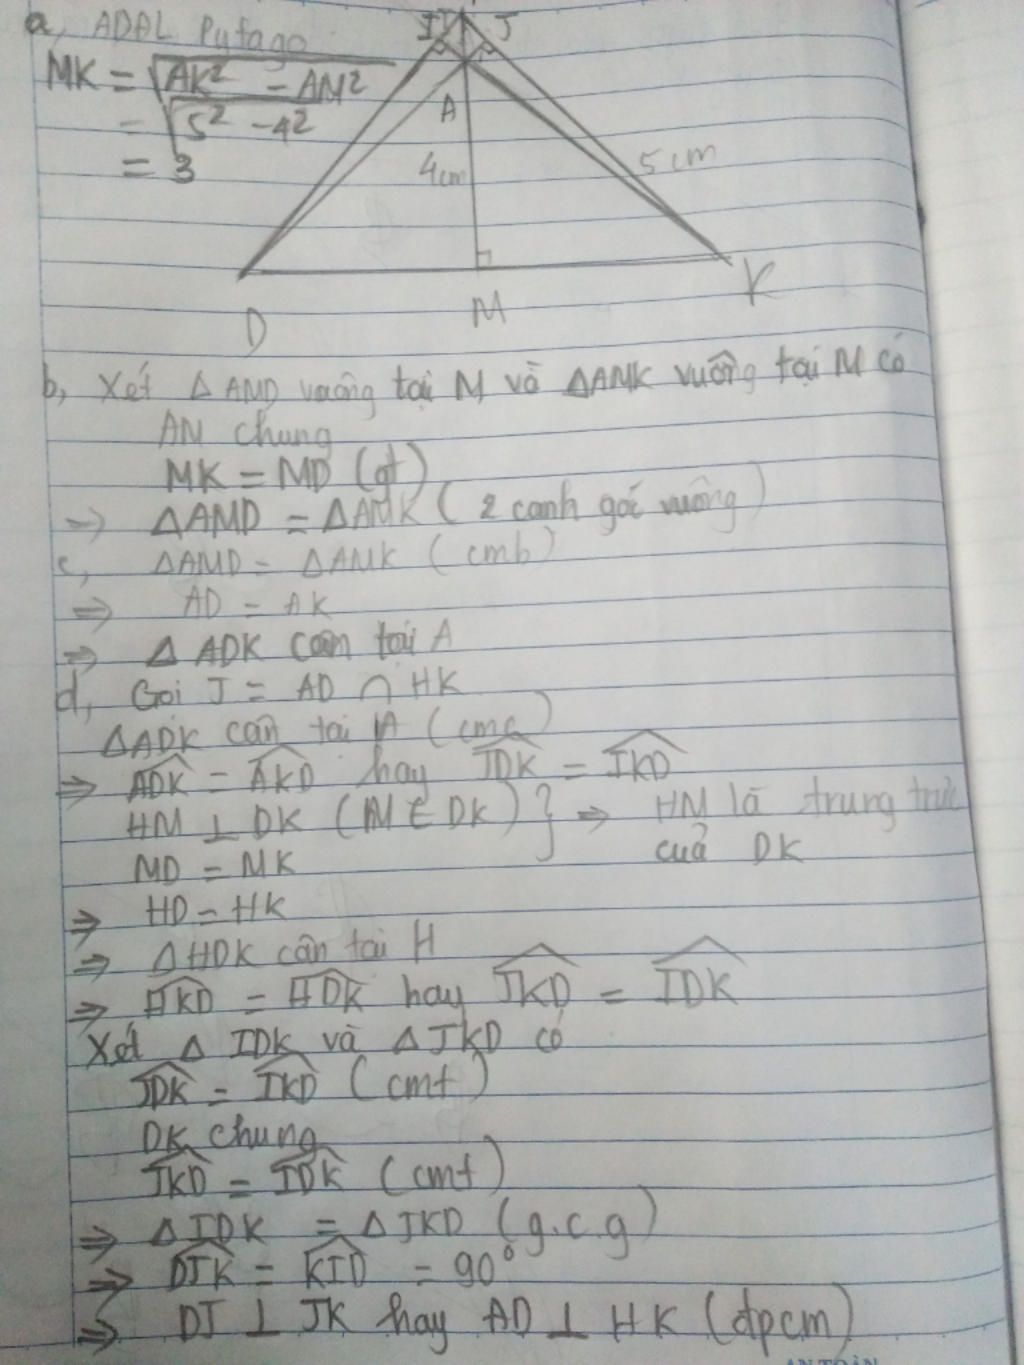 a, ADĐL Pytago
MK = √AK² - AM²
= √5² - 4²
= 3
I H J
A
4cm 5cm
D M K
b, Xét Δ AMD vuông tại M và ΔAMK vuông tại M có
AM chung
MK = MD (gt)
=> ΔAMD = ΔAMK ( 2 cạnh góc vuông)
c, ΔAMD = ΔAMK (cmb)
=> AD = AK
=> Δ ADK cân tại A
d, Gọi J = AD ∩ HK
ΔADK cân tại A (cmc)
=> ADK = AKD hay JDK = IKD
HM ⊥ DK (M ∈ DK) } => HM là trung trực
MD = MK của DK
=> HD = HK
=> ΔHDK cân tại H
=> HKD = HDK hay JKD = IDK
Xét Δ IDK và Δ JKD có
JDK = IKD (cmt)
DK chung
JKD = IDK (cmt)
=> Δ IDK = Δ JKD (g.c.g)
=> DJK = KID = 90°
=> DJ ⊥ JK hay AD ⊥ HK (đpcm)